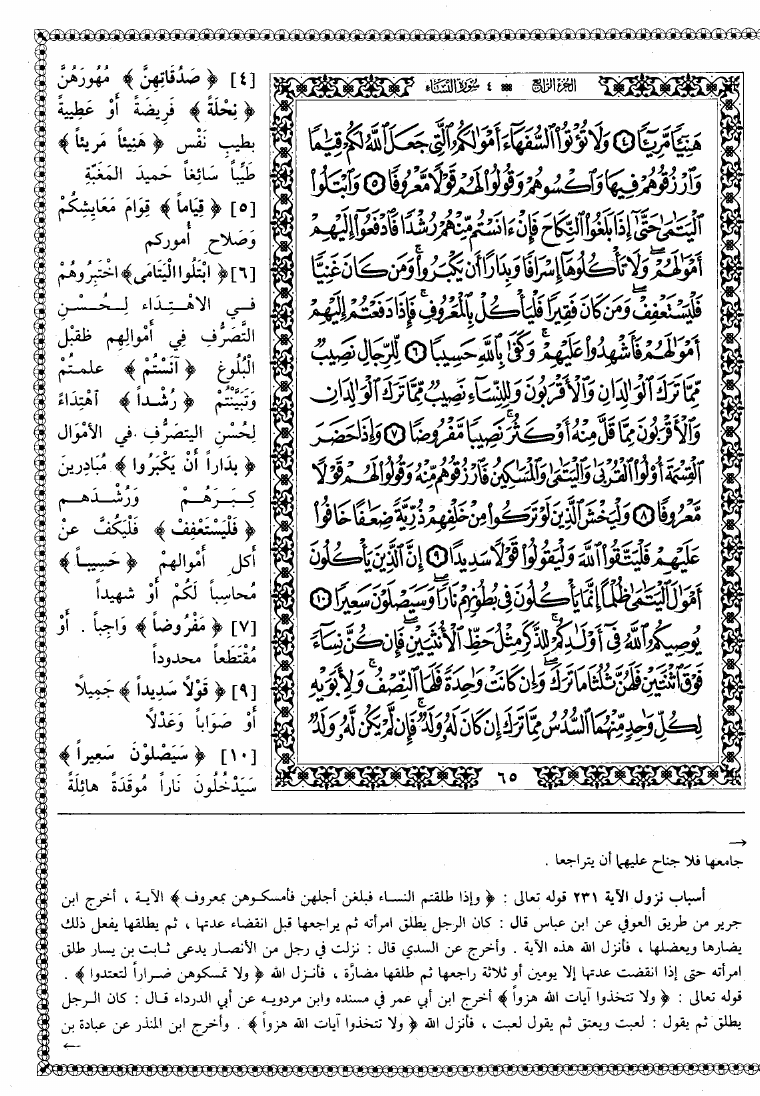 الجزء الرابع
٤ سورة النساء
هَنِيٓـًٔا مَّرِيٓـًٔا ٤ وَلَا تُؤْتُوا۟ ٱلسُّفَهَآءَ أَمْوَٰلَكُمُ ٱلَّتِى جَعَلَ ٱللَّهُ لَكُمْ قِيَٰمًا
وَٱرْزُقُوهُمْ فِيهَا وَٱكْسُوهُمْ وَقُولُوا۟ لَهُمْ قَوْلًا مَّعْرُوفًا ٥ وَٱبْتَلُوا۟
ٱلْيَتَٰمَىٰ حَتَّىٰٓ إِذَا بَلَغُوا۟ ٱلنِّكَاحَ فَإِنْ ءَانَسْتُم مِّنْهُمْ رُشْدًا فَٱدْفَعُوٓا۟ إِلَيْهِمْ
أَمْوَٰلَهُمْ ۖ وَلَا تَأْكُلُوهَآ إِسْرَافًا وَبِدَارًا أَن يَكْبَرُوا۟ ۚ وَمَن كَانَ غَنِيًّا
فَلْيَسْتَعْفِفْ ۖ وَمَن كَانَ فَقِيرًا فَلْيَأْكُلْ بِٱلْمَعْرُوفِ ۚ فَإِذَا دَفَعْتُمْ إِلَيْهِمْ
أَمْوَٰلَهُمْ فَأَشْهِدُوا۟ عَلَيْهِمْ ۚ وَكَفَىٰ بِٱللَّهِ حَسِيبًا ٦ لِّلرِّجَالِ نَصِيبٌ
مِّمَّا تَرَكَ ٱلْوَٰلِدَانِ وَٱلْأَقْرَبُونَ وَلِلنِّسَآءِ نَصِيبٌ مِّمَّا تَرَكَ ٱلْوَٰلِدَانِ
وَٱلْأَقْرَبُونَ مِمَّا قَلَّ مِنْهُ أَوْ كَثُرَ ۚ نَصِيبًا مَّفْرُوضًا ٧ وَإِذَا حَضَرَ
ٱلْقِسْمَةَ أُو۟لُوا۟ ٱلْقُرْبَىٰ وَٱلْيَتَٰمَىٰ وَٱلْمَسَٰكِينُ فَٱرْزُقُوهُم مِّنْهُ وَقُولُوا۟ لَهُمْ قَوْلًا
مَّعْرُوفًا ٨ وَلْيَخْشَ ٱلَّذِينَ لَوْ تَرَكُوا۟ مِنْ خَلْفِهِمْ ذُرِّيَّةً ضِعَٰفًا خَافُوا۟
عَلَيْهِمْ فَلْيَتَّقُوا۟ ٱللَّهَ وَلْيَقُولُوا۟ قَوْلًا سَدِيدًا ٩ إِنَّ ٱلَّذِينَ يَأْكُلُونَ
أَمْوَٰلَ ٱلْيَتَٰمَىٰ ظُلْمًا إِنَّمَا يَأْكُلُونَ فِى بُطُونِهِمْ نَارًا ۖ وَسَيَصْلَوْنَ سَعِيرًا ١٠
يُوصِيكُمُ ٱللَّهُ فِىٓ أَوْلَٰدِكُمْ ۖ لِلذَّكَرِ مِثْلُ حَظِّ ٱلْأُنثَيَيْنِ ۚ فَإِن كُنَّ نِسَآءً
فَوْقَ ٱثْنَتَيْنِ فَلَهُنَّ ثُلُثَا مَا تَرَكَ ۖ وَإِن كَانَتْ وَٰحِدَةً فَلَهَا ٱلنِّصْفُ ۚ وَلِأَبَوَيْهِ
لِكُلِّ وَٰحِدٍ مِّنْهُمَا ٱلسُّدُسُ مِمَّا تَرَكَ إِن كَانَ لَهُۥ وَلَدٌ ۚ فَإِن لَّمْ يَكُن لَّهُۥ وَلَدٌ
٦٥
[٤] ﴿ صَدُقَاتِهِنَّ ﴾ مُهُورَهُنَّ
﴿ نِحْلَةً ﴾ فَرِيضَةً أَوْ عَطِيةً
بطيبِ نَفْس ﴿ هَنِيئاً مَرِيئاً ﴾
طَيِّباً سَائِغاً حَمِيدَ المَغَبَّةِ
[٥] ﴿ قِيَاماً ﴾ قِوَامَ مَعَايِشِكُمْ
وَصَلاح أُموركم
[٦] ﴿ ابْتَلُوا الْيَتَامَى ﴾ اخْتَبِرُوهُمْ
في الاهْتِدَاء لِحُسْنِ
التَّصَرُّف فِي أَمْوَالِهِم ظقَبْل
الْبُلُوغِ ﴿ آنَسْتُمْ ﴾ علمتُمْ
وَتَبَيَّنْتُمْ ﴿ رُشْداً ﴾ اهْتِدَاءً
لِحُسْنِ اليتصَرُّف في الأمْوَال
﴿ بِدَاراً أَنْ يَكْبَرُوا ﴾ مُبَادِرينَ
كِبَرَهُمْ وَرُشْدَهم
﴿ فَلْيَسْتَعْفِفْ ﴾ فَلْيَكُفَّ عَنْ
أَكلِ أَموالهِمْ ﴿ حَسِيباً ﴾
مُحاسِباً لَكُمْ أَوْ شهيداً
[٧] ﴿ مَفْرُوضاً ﴾ وَاجِباً . أَوْ
مُقْتَطَعاً محدوداً
[٩] ﴿ قَوْلاً سَدِيداً ﴾ جَمِيلاً
أَوْ صَوَاباً وَعَدْلاً
[١٠] ﴿ سَيَصْلَوْنَ سَعِيراً ﴾
سَيَدْخُلُونَ نَاراً مُوقَدَةً هائِلَةً
→
جامعها فلا جناح عليهما أن يتراجعا .
أسباب نزول الآية ٢٣١ قوله تعالى : ﴿ وإذا طلقتم النساء فبلغن أجلهن فأمسكوهن بمعروف ﴾ الآية ، أخرج ابن
جرير من طريق العوفي عن ابن عباس قال : كان الرجل يطلق امرأته ثم يراجعها قبل انقضاء عدتها ، ثم يطلقها يفعل ذلك
يضارها ويعضلها ، فأنزل الله هذه الآية . وأخرج عن السدي قال : نزلت في رجل من الأنصار يدعى ثابت بن يسار طلق
امرأته حتى إذا انقضت عدتها إلا يومين أو ثلاثة راجعها ثم طلقها مضارَّة ، فأنزل الله ﴿ ولا تمسكوهن ضراراً لتعتدوا ﴾ .
قوله تعالى : ﴿ ولا تتخذوا آيات الله هزواً ﴾ أخرج ابن أبي عمر في مسنده وابن مردويه عن أبي الدرداء قال : كان الرجل
يطلق ثم يقول : لعبت ويعتق ثم يقول لعبت ، فأنزل الله ﴿ ولا تتخذوا آيات الله هزواً ﴾ . وأخرج ابن المنذر عن عبادة بن
←